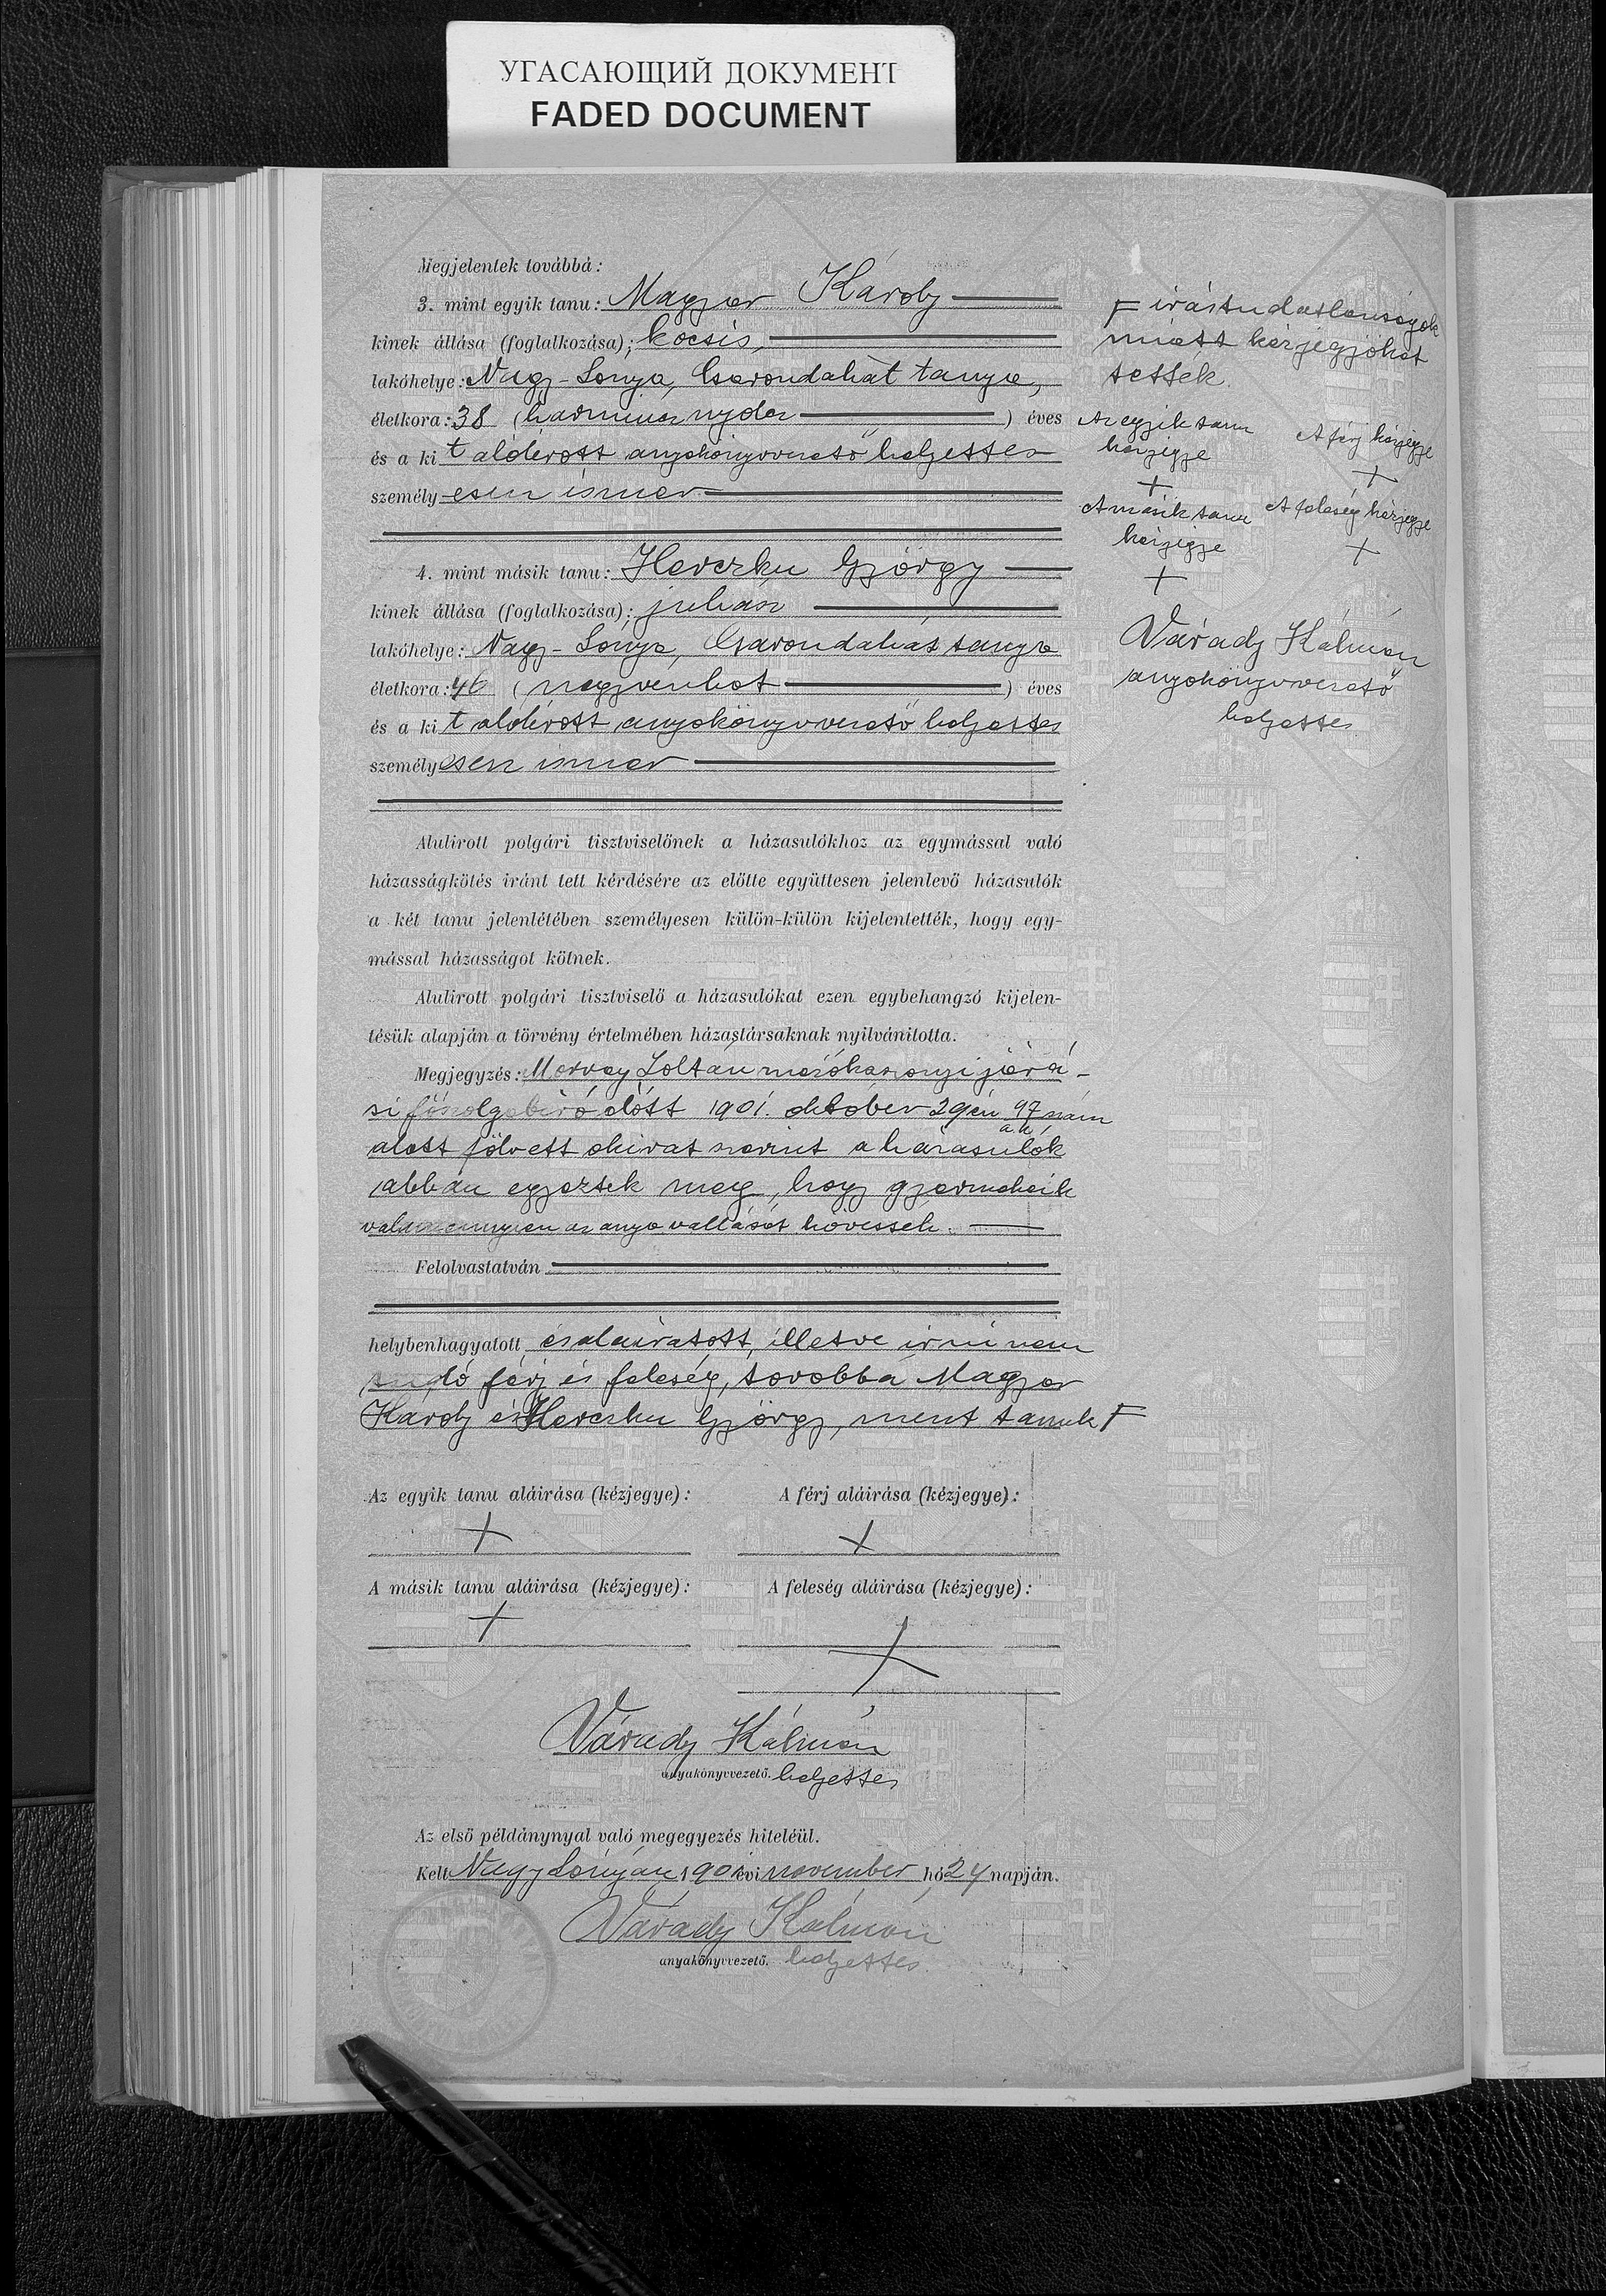 УГАСАЮЩИЙ ДОКУМЕНТ
FADED DOCUMENT
Megjelentek továbbá:
3. mint egyik tanu: Magyar Károly
kinek állása (foglalkozása): kocsis,
lakóhelye: Nagy-Lónya, Csarondahát tanya,
életkora: 38 (harmincznyolcz) éves
és a kit alólirott anyakönyvvezető helyettes
személyesen ismer
4. mint másik tanu: Heverku György
kinek állása (foglalkozása): juhász
lakóhelye: Nagy-Lónya, Csarondahát tanya
életkora: 46 (negyvenhat) éves
és a kit alólirott anyakönyvvezető helyettes
személyesen ismer
Alulirott polgári tisztviselőnek a házasulókhoz az egymással való
házasságkötés iránt tett kérdésére az előtte együttesen jelenlevő házasulók
a két tanu jelenlétében személyesen külön-külön kijelentették, hogy egy-
mással házasságot kötnek.
Alulirott polgári tisztviselő a házasulókat ezen egybehangzó kijelen-
tésük alapján a törvény értelmében házastársaknak nyilvánitotta.
Megjegyzés: Morvay Zoltán mezőkaszonyi járá-
si főszolgabiró előtt 1901. október 29én 97 szám
a.k.
alatt fölvett okirat szerint a házasulók
abban egyeztek meg, hogy gyermekeik
valamennyien az anya vallását kövessék.
Felolvastatván
helybenhagyatott, és aláiratott, illetve irni nem
tudó férj és feleség, továbbá Magyar
Károly és Heverku György, mint tanuk F
Az egyik tanu aláirása (kézjegye): A férj aláirása (kézjegye):
+ +
A másik tanu aláirása (kézjegye): A feleség aláirása (kézjegye):
+ +
Várady Kálmán
anyakönyvvezető. helyettes
Az első példánynyal való megegyezés hiteléül.
Kelt Nagy Lónyán 1901 évi november hó 24 napján.
Várady Kálmán
anyakönyvvezető. helyettes
F irástudatlanságok
miatt kézjegyöket
tették.
Az egyik tanu
kézjegye
+
A férj kézjegye
+
A másik tanu
kézjegye
+
A feleség kézjegye
+
Várady Kálmán
anyakönyvvezető
helyettes